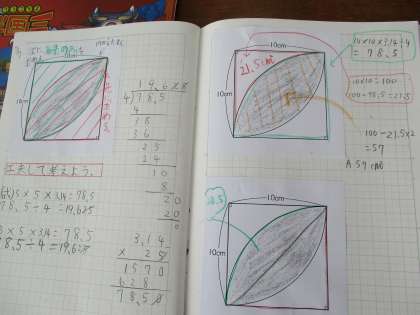 10cm
10cm
19.6
4)78.5
4
38
36
25
24
10
8
20
20
0
工夫して考えよう。
5 × 5 × 3.14 = 78.5
78.5 ÷ 4 = 19.625
5 × 5 × 3.14 = 78.5
78.5 ÷ 4 = 19.625
3.14
× 25
1570
628
78.50
10cm
10cm
21.5cm²
10×10×3.14÷4
= 78.5
10×10=100
100-78.5=21.5
100-21.5×2
=57
A 57cm²
10cm
10cm
78.5